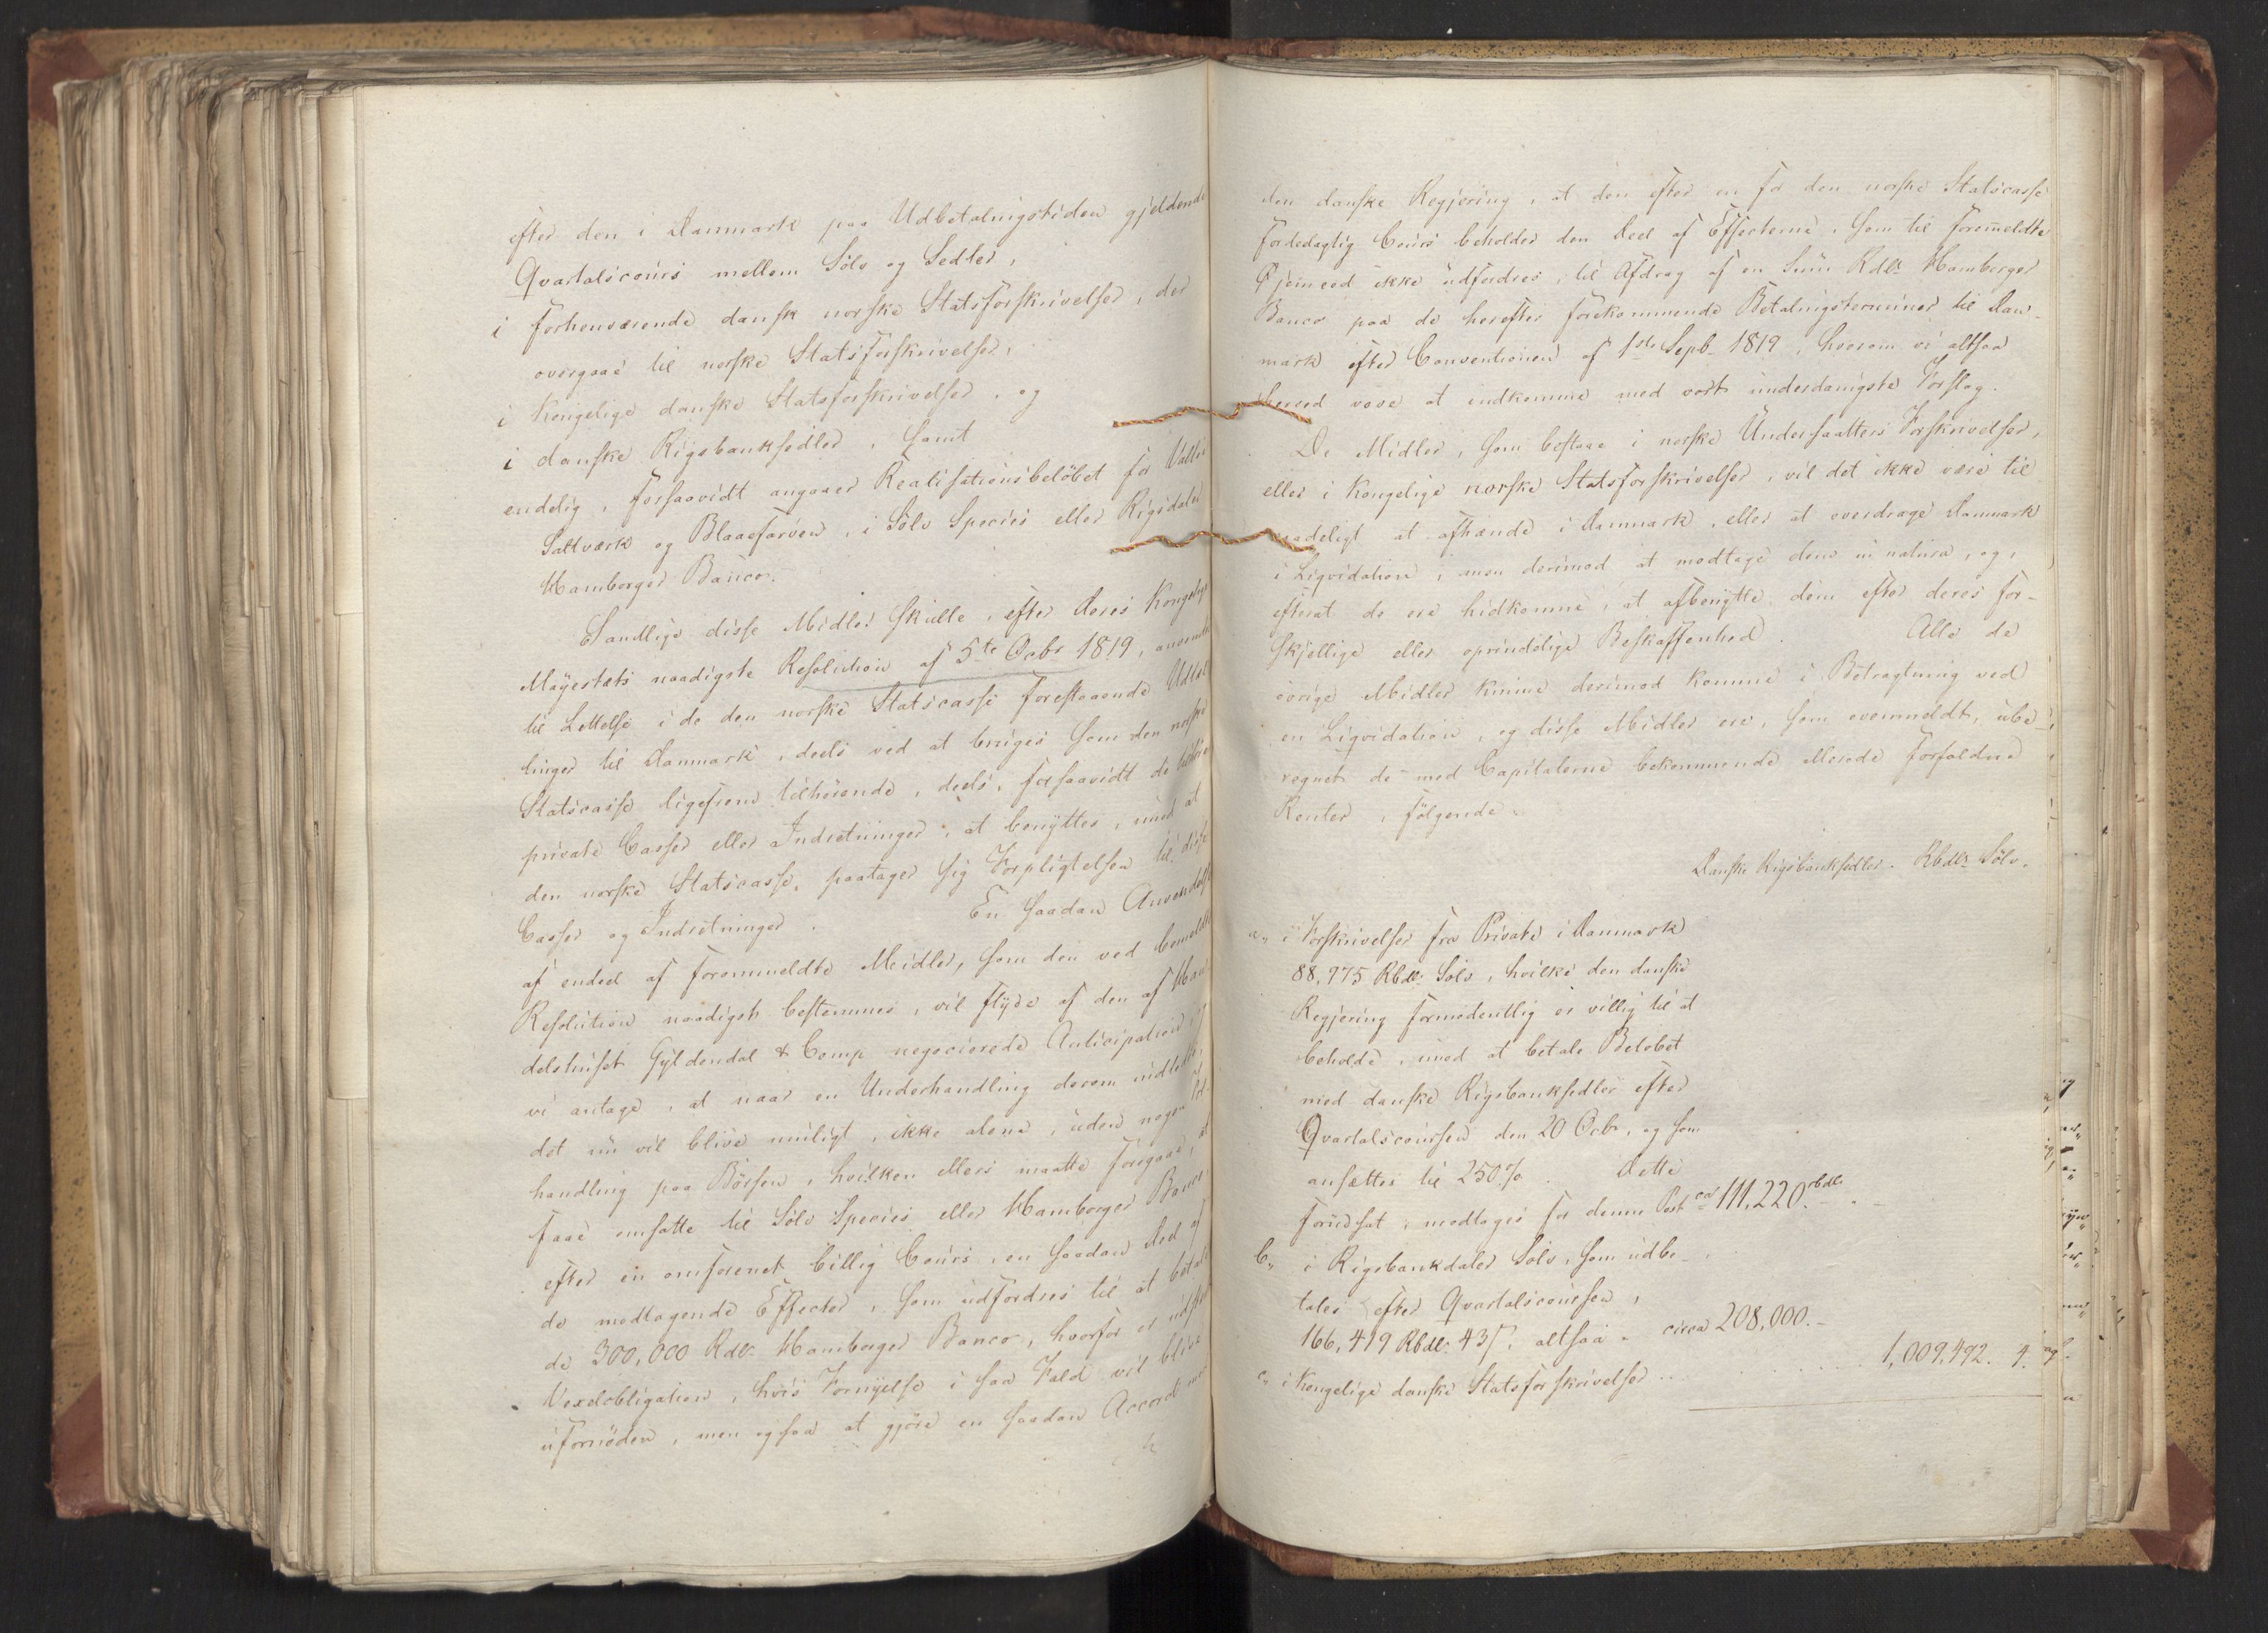 efter den i Danmark paa Udbetalingstiden gjeldende
Qvartalscours mellem Sölv og Sedler,
i forhenværende dansk norske Statsforskrivelser, der
overgaae til norske Statsforskrivelser,
i Kongelige danske Statsforskrivelser, og
i danske Rigsbanksedler, samt
endelig, forsaavidt angaaer Realisationsbelöbet for Valløe
Saltværk og Blaafarven, i Sölv Species eller Rigsdaler
Hamborger Banco.
Samtlige disse Midler skulle, efter Deres Kongelige
Mayestæts naadigste Resolution af 5te Octbr 1819, anvendes
til Lettelse i de den norske Statscasse forestaaende Udtæl
linger til Danmark, deels ved at bruges som den norske
Statscasse ligefrem tilhörende, deels, forsaavidt de tilhöre
private Casser eller Indretninger, at benyttes, mod at
den norske Statscasse, paatager sig Forpligtelsen til disse
Casser og Indretninger. En saadan Anvendelse
af endeel af forommeldte Midler, som den ved bemeldte
Resolution naadigst bestemmes, vil flyde af den af Han-
delshuset Gyldendal & Comp negocierede Anticipation,
vi antage, at naar en Underhandling derom indledes,
det nu vil blive muligt, ikke alene, uden nogen For-
handling paa Börsen, hvilken ellers maatte foregaae, at
faae omsatte til Sölv Species eller Hamborger Banco
efter en omforenet billig Cours, en saadan Deel af
de modtagende Effecter, som udfordres til at betale
de 300,000 Rdlr Hamborger Banco, hvorfor er udstedt
Vexelobligation, hvis Fornyelse i saa Fald vil blive
ufornöden, men ogsaa at gjöre en saadan Accord med
den danske Regjering, at den efter en for den norske Statscasse
fordelagtig Cours beholder den Deel af Effecterne, som til forommeldte
Öiemeed ikke udfordres, til Afdrag af en Sum Rdlr Hamborger
Banco paa de herefter forekommende Betalingsterminer til Dan-
mark efter Conventionen af 1ste Septb 1819, hvorom vi altsaa
herved vove at indkomme med vort underdanigste Forslag.
De Midler, som bestaae i norske Undersaatters Forskrivelser,
eller i Kongelige norske Statsforskrivelser, vil det ikke være til
raadeligt at afhænde i Danmark, eller at overdrage Danmark
i Liqvidation, men derimod at modtage dem in natura, og,
efterat de ere hidkomne, at afbenytte dem efter deres for-
skjellige eller oprindelige Beskaffenhed. Alle de
övrige Midler kunne derimod komme i Betragtning ved
en Liqvidation, og disse Midler ere, som ovenmeldt, ube-
regnet de med Capitalerne bekommende allerede forfaldne
Renter, fölgende:
Danske Rigsbanksedler. Rbdlr Sölv.
a„ i Forskrivelser fra Private i Danmark
88,975 Rbdlr Sölv, hvilke den danske
Regjering formodentlig er villig til at
beholde, mod at betale Belöbet
med danske Rigsbanksedler efter
Qvartalscoursen den 20 Octbr, og som
ansættes til 250%. Dette
forudsat, modtages for denne Post ca 111,220 rbdlr.
b„ i Rigsbankdaler Sölv, som udbe-
tales efter Qvartalscoursen,
166,419 Rbdlr 43ſ, altsaa circa 208,000.-
c„ i Kongelige danske Statsforskrivelser ... 1,009,492. 4.